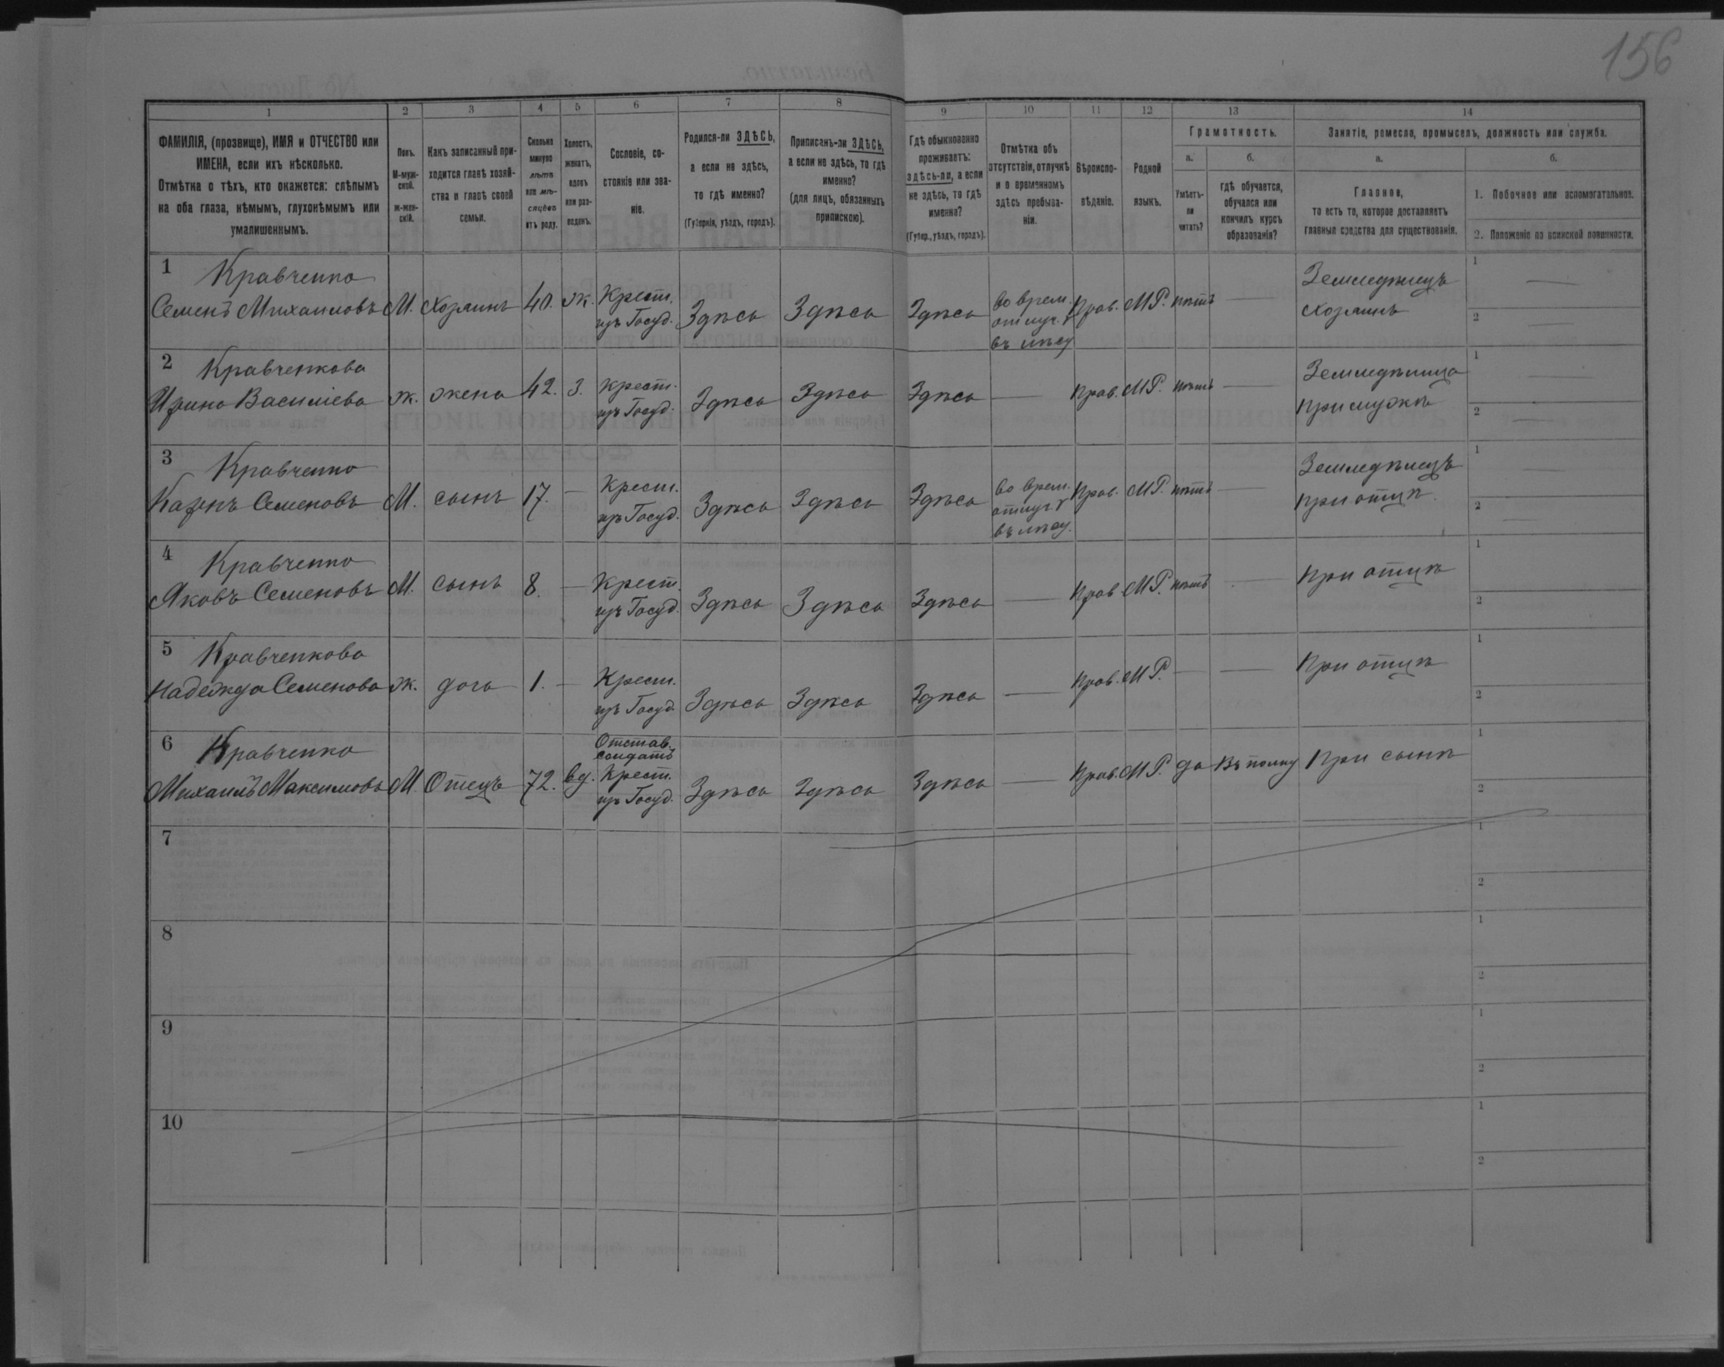 156
1 2 3 4 5 6 7 8 9 10 11 12 13 14
ФАМИЛІЯ, (прозвище), ИМЯ и ОТЧЕСТВО или
ИМЕНА, если ихъ нѣсколько.
Отмѣтка о тѣхъ, кто окажется: слѣпымъ
на оба глаза, нѣмымъ, глухонѣмымъ или
умалишеннымъ.
Полъ.
М-муж-
ской.
ж-жен-
скій.
Какъ записанный при-
ходится главѣ хозяй-
ства и главѣ своей
семьи.
Сколько
минуло
лѣтъ
или мѣ-
сяцевъ
отъ роду.
Холостъ,
женатъ,
вдовъ
или раз-
веденъ.
Сословіе, со-
стояніе или зва-
ніе.
Родился-ли ЗДѢСЬ,
а если не здѣсь,
то гдѣ именно?
(Губернія, уѣздъ, городъ).
Приписанъ-ли ЗДѢСЬ,
а если не здѣсь, то гдѣ
именно?
(для лицъ, обязанныхъ
припискою).
Гдѣ обыкновенно
проживаетъ:
здѣсь-ли, а если
не здѣсь, то гдѣ
именно?
(Губер., уѣздъ, городъ).
Отмѣтка объ
отсутствіи, отлучкѣ
и о временномъ
здѣсь пребыва-
ніи.
Вѣроиспо-
вѣданіе.
Родной
языкъ.
Грамотность.
а.
Умѣетъ-
ли
читать?
б.
гдѣ обучается,
обучался или
кончилъ курсъ
образованія?
Занятіе, ремесло, промыселъ, должность или служба.
а.
Главное,
то есть то, которое доставляетъ
главныя средства для существованія.
б.
1. Побочное или вспомогательное.
2. Положеніе по воинской повинности.
1 Кравченко
Семенъ Михаиловъ М. хозяинъ 40. ж. Крест. изъ Госуд. Здѣсь Здѣсь Здѣсь во врем. отлуч. въ лѣсу Прав. М.Р. нѣтъ — Земледѣлецъ хозяинъ 1 — 2 —
2 Кравченкова
Ирина Василіева ж. жена 42. З. Крест. изъ Госуд. Здѣсь Здѣсь Здѣсь — Прав. М.Р. нѣтъ — Земледѣлица при мужѣ 1 — 2 —
3 Кравченко
Семеновъ М. сынъ 17. — Крест. изъ Госуд. Здѣсь Здѣсь Здѣсь во врем. отлуч. въ лѣсу. Прав. М.Р. нѣтъ — Земледѣлецъ при отцѣ. 1 — 2 —
4 Кравченко
Яковъ Семеновъ М. сынъ 8. — Крест. изъ Госуд. Здѣсь Здѣсь Здѣсь — Прав М.Р. нѣтъ — При отцѣ 1 2
5 Кравченкова
Надежда Семенова ж. дочь 1. — Крест. изъ Госуд Здѣсь Здѣсь Здѣсь — Прав. М.Р. — — При отцѣ 1 2
6 Кравченко
Михаилъ Максимовъ М. Отецъ 72. вд. Отстав. солдатъ Крест. изъ Госуд. Здѣсь Здѣсь Здѣсь — Прав. М.Р. да въ полку При сынѣ 1 2
7 1 2
8 1 2
9 1 2
10 1 2